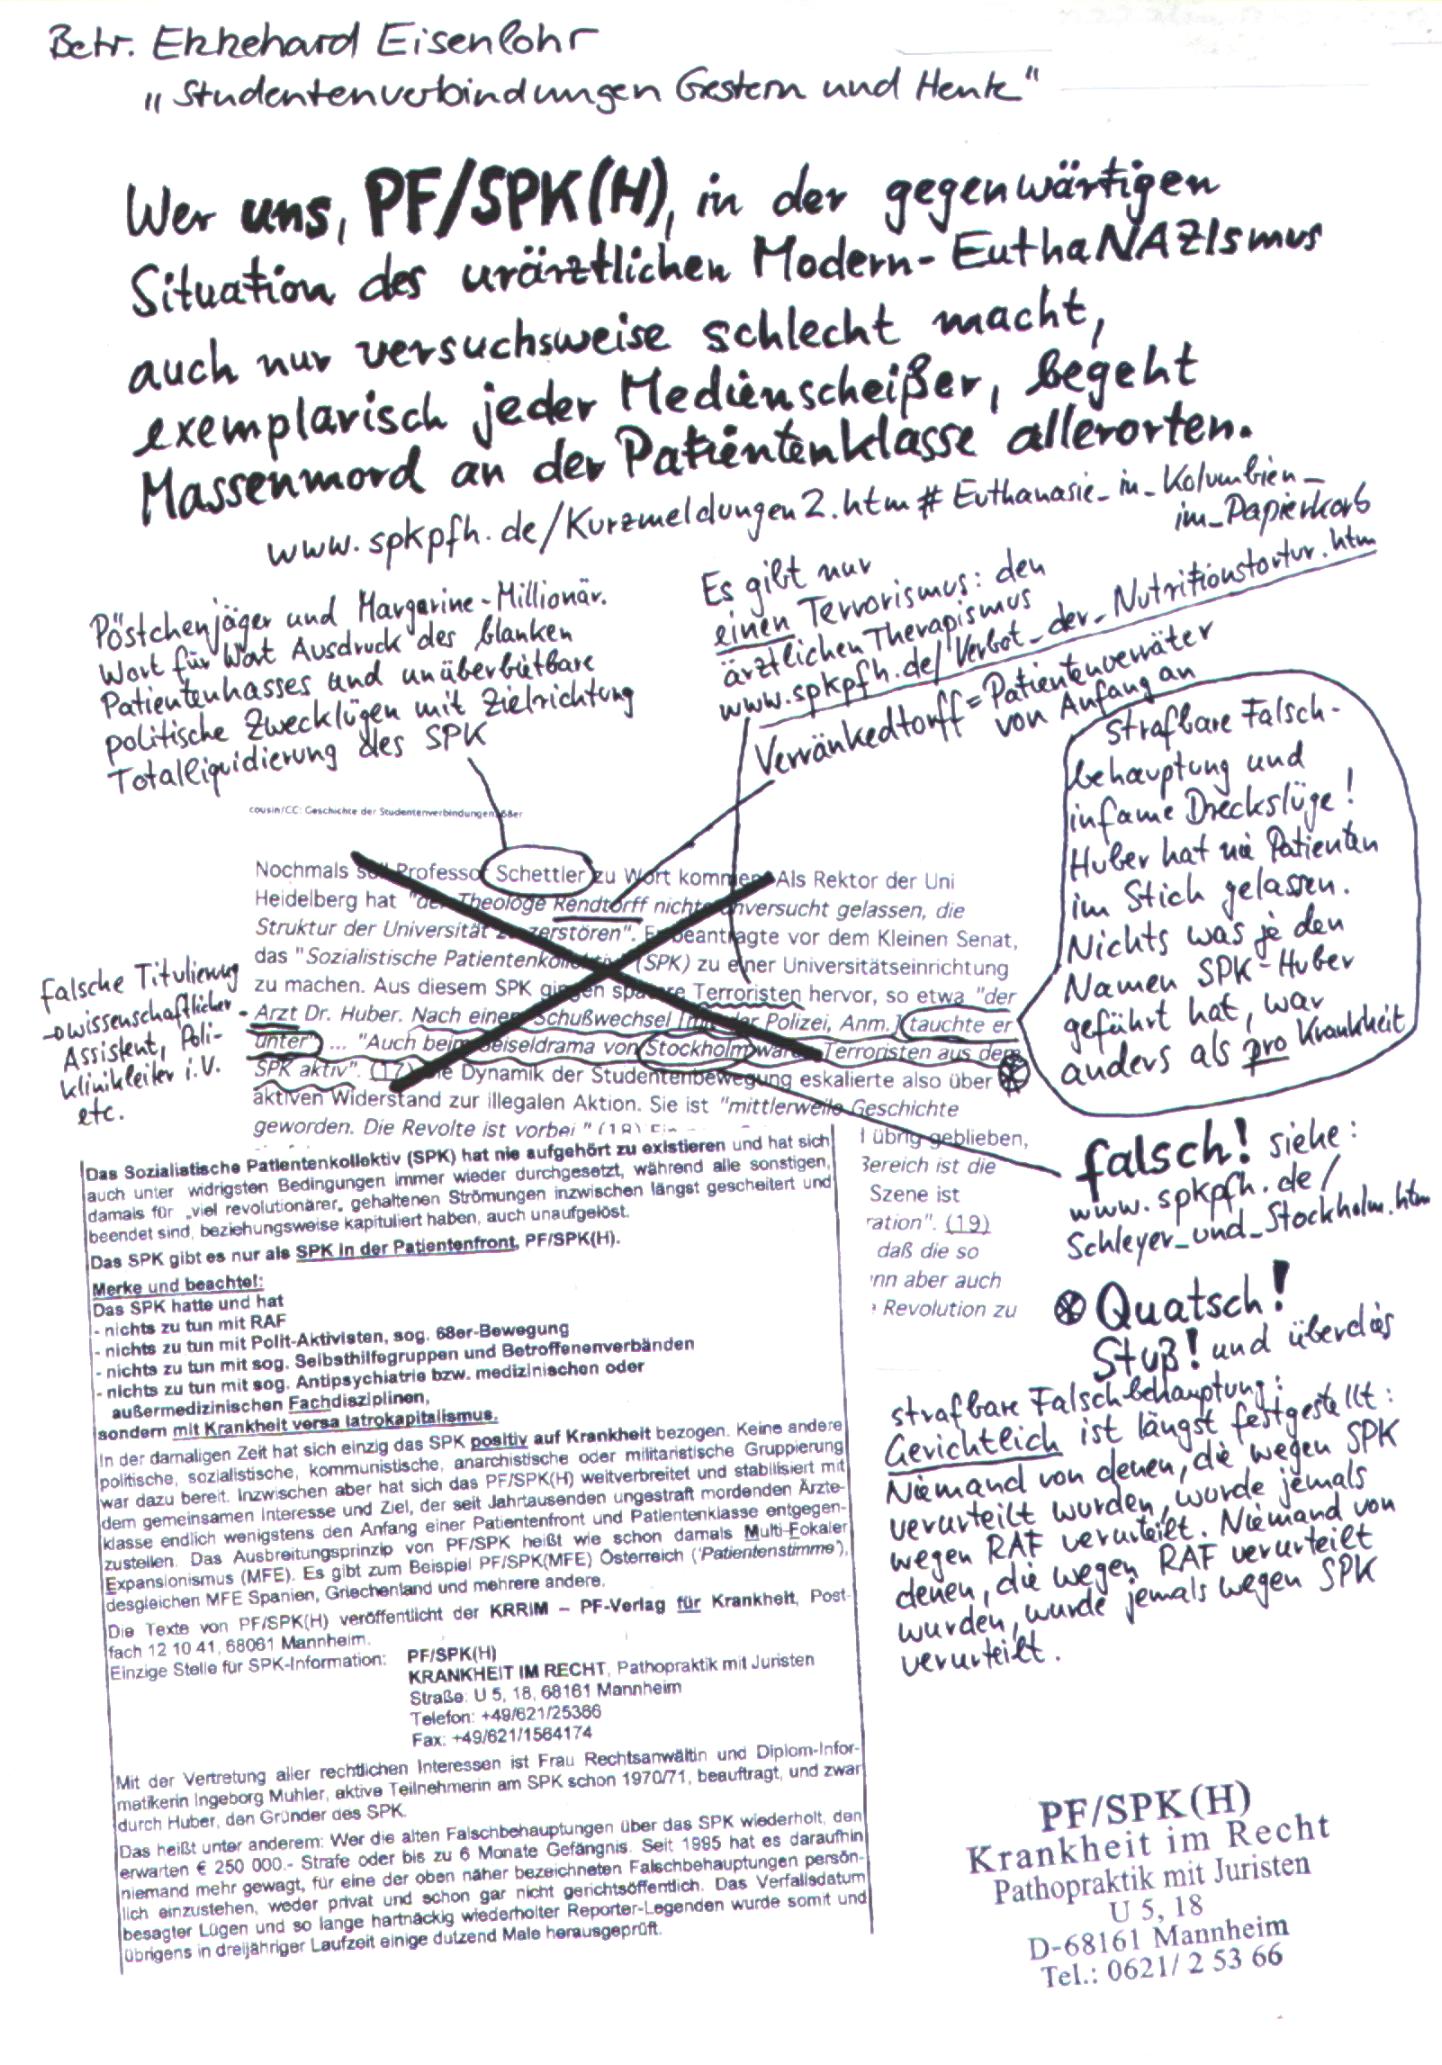 Betr. Ekkehard Eisenlohr
"Studentenverbindungen Gestern und Heute"
Wer uns, PF/SPK(H), in der gegenwärtigen
Situation des urärztlichen Modern-EuthaNAZIsmus
auch nur versuchsweise schlecht macht,
exemplarisch jeder Medienscheißer, begeht
Massenmord an der Patientenklasse allerorten.
www.spkpfh.de/Kurzmeldungen2.htm#Euthanasie_in_Kolumbien_
im_Papierkorb
Pöstchenjäger und Margarine-Millionär.
Wort für Wort Ausdruck des blanken
Patientenhasses und unüberbietbare
politische Zwecklügen mit Zielrichtung
Totalliquidierung des SPK
Es gibt nur
einen Terrorismus: den
ärztlichen Therapismus
www.spkpfh.de/Verbot_der_Nutritionstortur.htm
Verränkedtorff = Patientenverräter
von Anfang an
Strafbare Falsch-
behauptung und
infame Dreckslüge!
Huber hat nie Patienten
im Stich gelassen.
Nichts was je den
Namen SPK-Huber
geführt hat, war
anders als pro Krankheit
cousin/CC: Geschichte der Studentenverbindungen, 68er
Nochmals soll Professor Schettler zu Wort kommen. Als Rektor der Uni
Heidelberg hat "der Theologe Rendtorff nichts unversucht gelassen, die
Struktur der Universität zu zerstören". Er beantragte vor dem Kleinen Senat,
das "Sozialistische Patientenkollektiv" (SPK) zu einer Universitätseinrichtung
zu machen. Aus diesem SPK gingen spätere Terroristen hervor, so etwa "der
Arzt Dr. Huber. Nach einem Schußwechsel [mit der Polizei, Anm.] tauchte er
unter" ... "Auch beim Geiseldrama von Stockholm waren Terroristen aus dem
SPK aktiv". (17) Die Dynamik der Studentenbewegung eskalierte also über
aktiven Widerstand zur illegalen Aktion. Sie ist "mittlerweile Geschichte
geworden. Die Revolte ist vorbei" (18)
falsche Titulierung
wissenschaftlicher
Assistent, Poli-
klinikleiter i.V.
etc.
übrig geblieben,
Bereich ist die
Szene ist
ration". (19)
daß die so
nn aber auch
Revolution zu
falsch! siehe:
www.spkpfh.de/
Schleyer_und_Stockholm.htm
⊗ Quatsch!
Stuß! und überdies
strafbare Falschbehauptung:
Gerichtlich ist längst festgestellt:
Niemand von denen, die wegen SPK
verurteilt wurden, wurde jemals
wegen RAF verurteilt. Niemand von
denen, die wegen RAF verurteilt
wurden, wurde jemals wegen SPK
verurteilt.
Das Sozialistische Patientenkollektiv (SPK) hat nie aufgehört zu existieren und hat sich
auch unter widrigsten Bedingungen immer wieder durchgesetzt, während alle sonstigen,
damals für „viel revolutionärer„ gehaltenen Strömungen inzwischen längst gescheitert und
beendet sind, beziehungsweise kapituliert haben, auch unaufgelöst.
Das SPK gibt es nur als SPK in der Patientenfront, PF/SPK(H).
Merke und beachte!:
Das SPK hatte und hat
- nichts zu tun mit RAF
- nichts zu tun mit Polit-Aktivisten, sog. 68er-Bewegung
- nichts zu tun mit sog. Selbsthilfegruppen und Betroffenenverbänden
- nichts zu tun mit sog. Antipsychiatrie bzw. medizinischen oder
außermedizinischen Fachdisziplinen,
sondern mit Krankheit versa Iatrokapitalismus.
In der damaligen Zeit hat sich einzig das SPK positiv auf Krankheit bezogen. Keine andere
politische, sozialistische, kommunistische, anarchistische oder militaristische Gruppierung
war dazu bereit. Inzwischen aber hat sich das PF/SPK(H) weitverbreitet und stabilisiert mit
dem gemeinsamen Interesse und Ziel, der seit Jahrtausenden ungestraft mordenden Ärzte-
klasse endlich wenigstens den Anfang einer Patientenfront und Patientenklasse entgegen-
zustellen. Das Ausbreitungsprinzip von PF/SPK heißt wie schon damals Multi-Fokaler
Expansionismus (MFE). Es gibt zum Beispiel PF/SPK(MFE) Österreich ('Patientenstimme'),
desgleichen MFE Spanien, Griechenland und mehrere andere.
Die Texte von PF/SPK(H) veröffentlicht der KRRIM – PF-Verlag für Krankheit, Post-
fach 12 10 41, 68061 Mannheim.
Einzige Stelle für SPK-Information: PF/SPK(H)
KRANKHEIT IM RECHT, Pathopraktik mit Juristen
Straße: U 5, 18, 68161 Mannheim
Telefon: +49/621/25366
Fax: +49/621/1564174
Mit der Vertretung aller rechtlichen Interessen ist Frau Rechtsanwältin und Diplom-Infor-
matikerin Ingeborg Muhler, aktive Teilnehmerin am SPK schon 1970/71, beauftragt, und zwar
durch Huber, den Gründer des SPK.
Das heißt unter anderem: Wer die alten Falschbehauptungen über das SPK wiederholt, den
erwarten € 250 000.- Strafe oder bis zu 6 Monate Gefängnis. Seit 1995 hat es daraufhin
niemand mehr gewagt, für eine der oben näher bezeichneten Falschbehauptungen persön-
lich einzustehen, weder privat und schon gar nicht gerichtsöffentlich. Das Verfallsdatum
besagter Lügen und so lange hartnäckig wiederholter Reporter-Legenden wurde somit und
übrigens in dreijähriger Laufzeit einige dutzend Male herausgeprüft.
PF/SPK(H)
Krankheit im Recht
Pathopraktik mit Juristen
U 5, 18
D-68161 Mannheim
Tel.: 0621/ 2 53 66